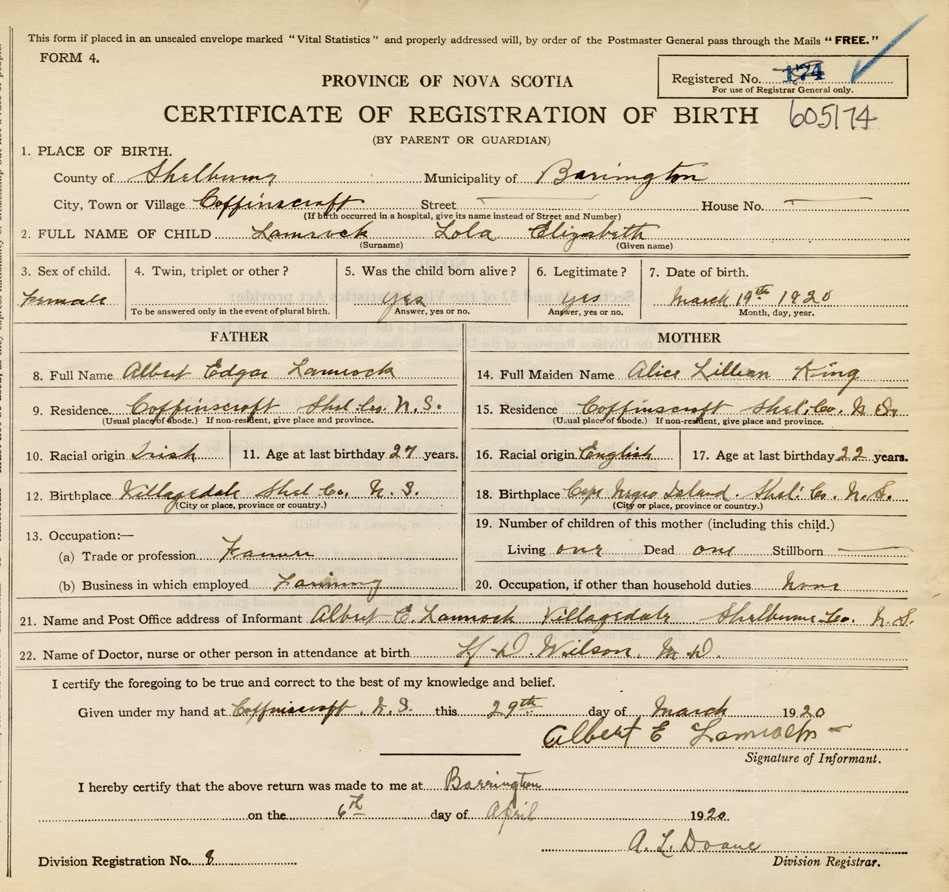 This form if placed in an unsealed envelope marked "Vital Statistics" and properly addressed will, by order of the Postmaster General pass through the Mails "FREE."
FORM 4.
PROVINCE OF NOVA SCOTIA
Registered No. 174
For use of Registrar General only.
CERTIFICATE OF REGISTRATION OF BIRTH 605174
(BY PARENT OR GUARDIAN)
1. PLACE OF BIRTH.
County of Shelburne Municipality of Barington
City, Town or Village Coffinscroft Street — House No. —
(If birth occurred in a hospital, give its name instead of Street and Number)
2. FULL NAME OF CHILD Lamrock Lola Elizabeth
(Surname) (Given name)
3. Sex of child. 4. Twin, triplet or other? 5. Was the child born alive? 6. Legitimate? 7. Date of birth.
Female yes yes March 19th 1920
To be answered only in the event of plural birth. Answer, yes or no. Answer, yes or no. Month, day, year.
FATHER
8. Full Name Albert Edgar Lamrock
9. Residence. Coffinscroft Shel. Co. N. S.
(Usual place of abode.) If non-resident, give place and province.
10. Racial origin Irish 11. Age at last birthday 27 years.
12. Birthplace Villagedale Shel Co. N. S.
(City or place, province or country.)
13. Occupation:—
(a) Trade or profession Farmer
(b) Business in which employed Farming
MOTHER
14. Full Maiden Name Alice Lillian King
15. Residence Coffinscroft Shel. Co. N. S.
(Usual place of abode.) If non-resident, give place and province.
16. Racial origin. English 17. Age at last birthday. 22 years.
18. Birthplace Cape Negro Island. Shel. Co. N. S.
(City or place, province or country.)
19. Number of children of this mother (including this child.)
Living one Dead one Stillborn —
20. Occupation, if other than household duties None
21. Name and Post Office address of Informant Albert E. Lamrock Villagedale Shelburne Co. N. S.
22. Name of Doctor, nurse or other person in attendance at birth Wilson. M. D.
I certify the foregoing to be true and correct to the best of my knowledge and belief.
Given under my hand at Coffinscroft. N. S. this 29th day of March 1920
Albert E Lamrock
Signature of Informant.
I hereby certify that the above return was made to me at Barrington
on the 6th day of April 1920.
A. L. Doane
Division Registration No. 8 Division Registrar.